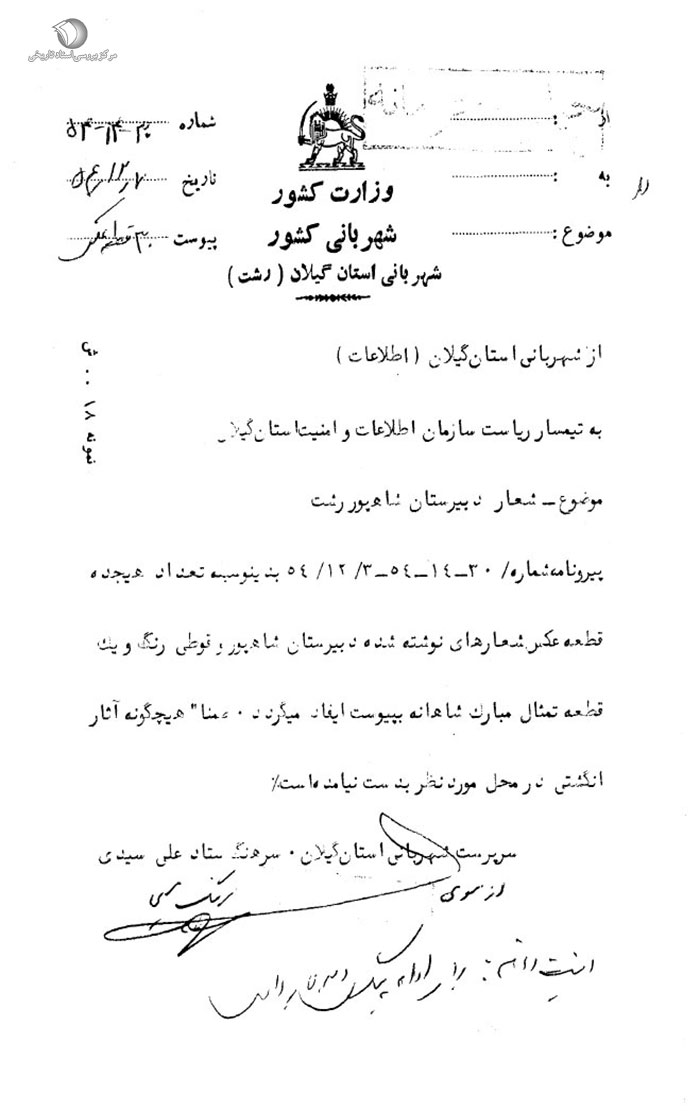 مرکز بررسی اسناد تاریخی
شماره ۳۰-۱۴-۵۴
تاریخ
پیوست
از :
به :
موضوع :
وزارت کشور
شهربانی کشور
شهربانی استان گیلان ( رشت )
نمونه ۱۸
از شهربانی استان گیلان ( اطلاعات )
به تیمسار ریاست سازمان اطلاعات و امنیت استان گیلان
موضوع ــ شعار دبیرستان شاهپور رشت
پیرونامه شماره/ ۳۰ــ۱۴ــ۵۴ــ۳/ ۱۲/ ۵۴ بدینوسیله تعداد هیجده
قطعه عکس شعارهای نوشته شده دبیرستان شاهپور و قوطی رنگ و یک
قطعه تمثال مبارک شاهانه بپیوست ایفاد میگردد ۰ ضمنا" هیچگونه آثار
انگشتی در محل مورد نظر بدست نیامده است٪
سرپرست شهربانی استان گیلان ۰ سرهنگ ستاد علی سیدی
از سوی